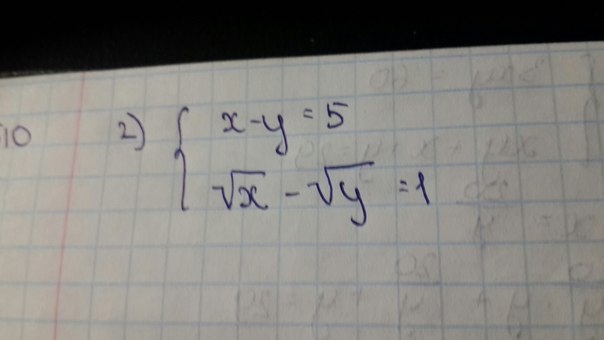 10 2) { x-y=5
√x - √y = 1